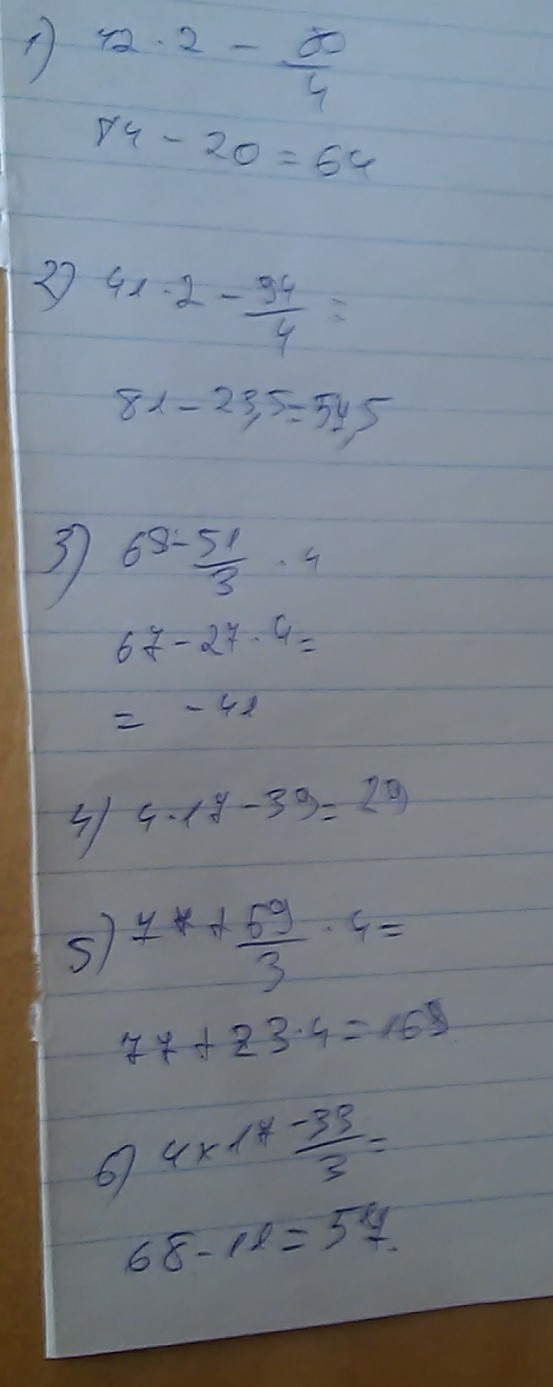 1) 42 · 2 - 80/4
84 - 20 = 64
2) 41 · 2 - 94/4 =
81 - 23,5 = 54,5
3) 68 - 51/3 · 4
67 - 27 · 4 =
= - 41
4) 4 · 17 - 39 = 29
5) 77 + 69/3 · 4 =
77 + 23 · 4 = 169
6) 4 x 17 - 33/3 =
68 - 11 = 57.